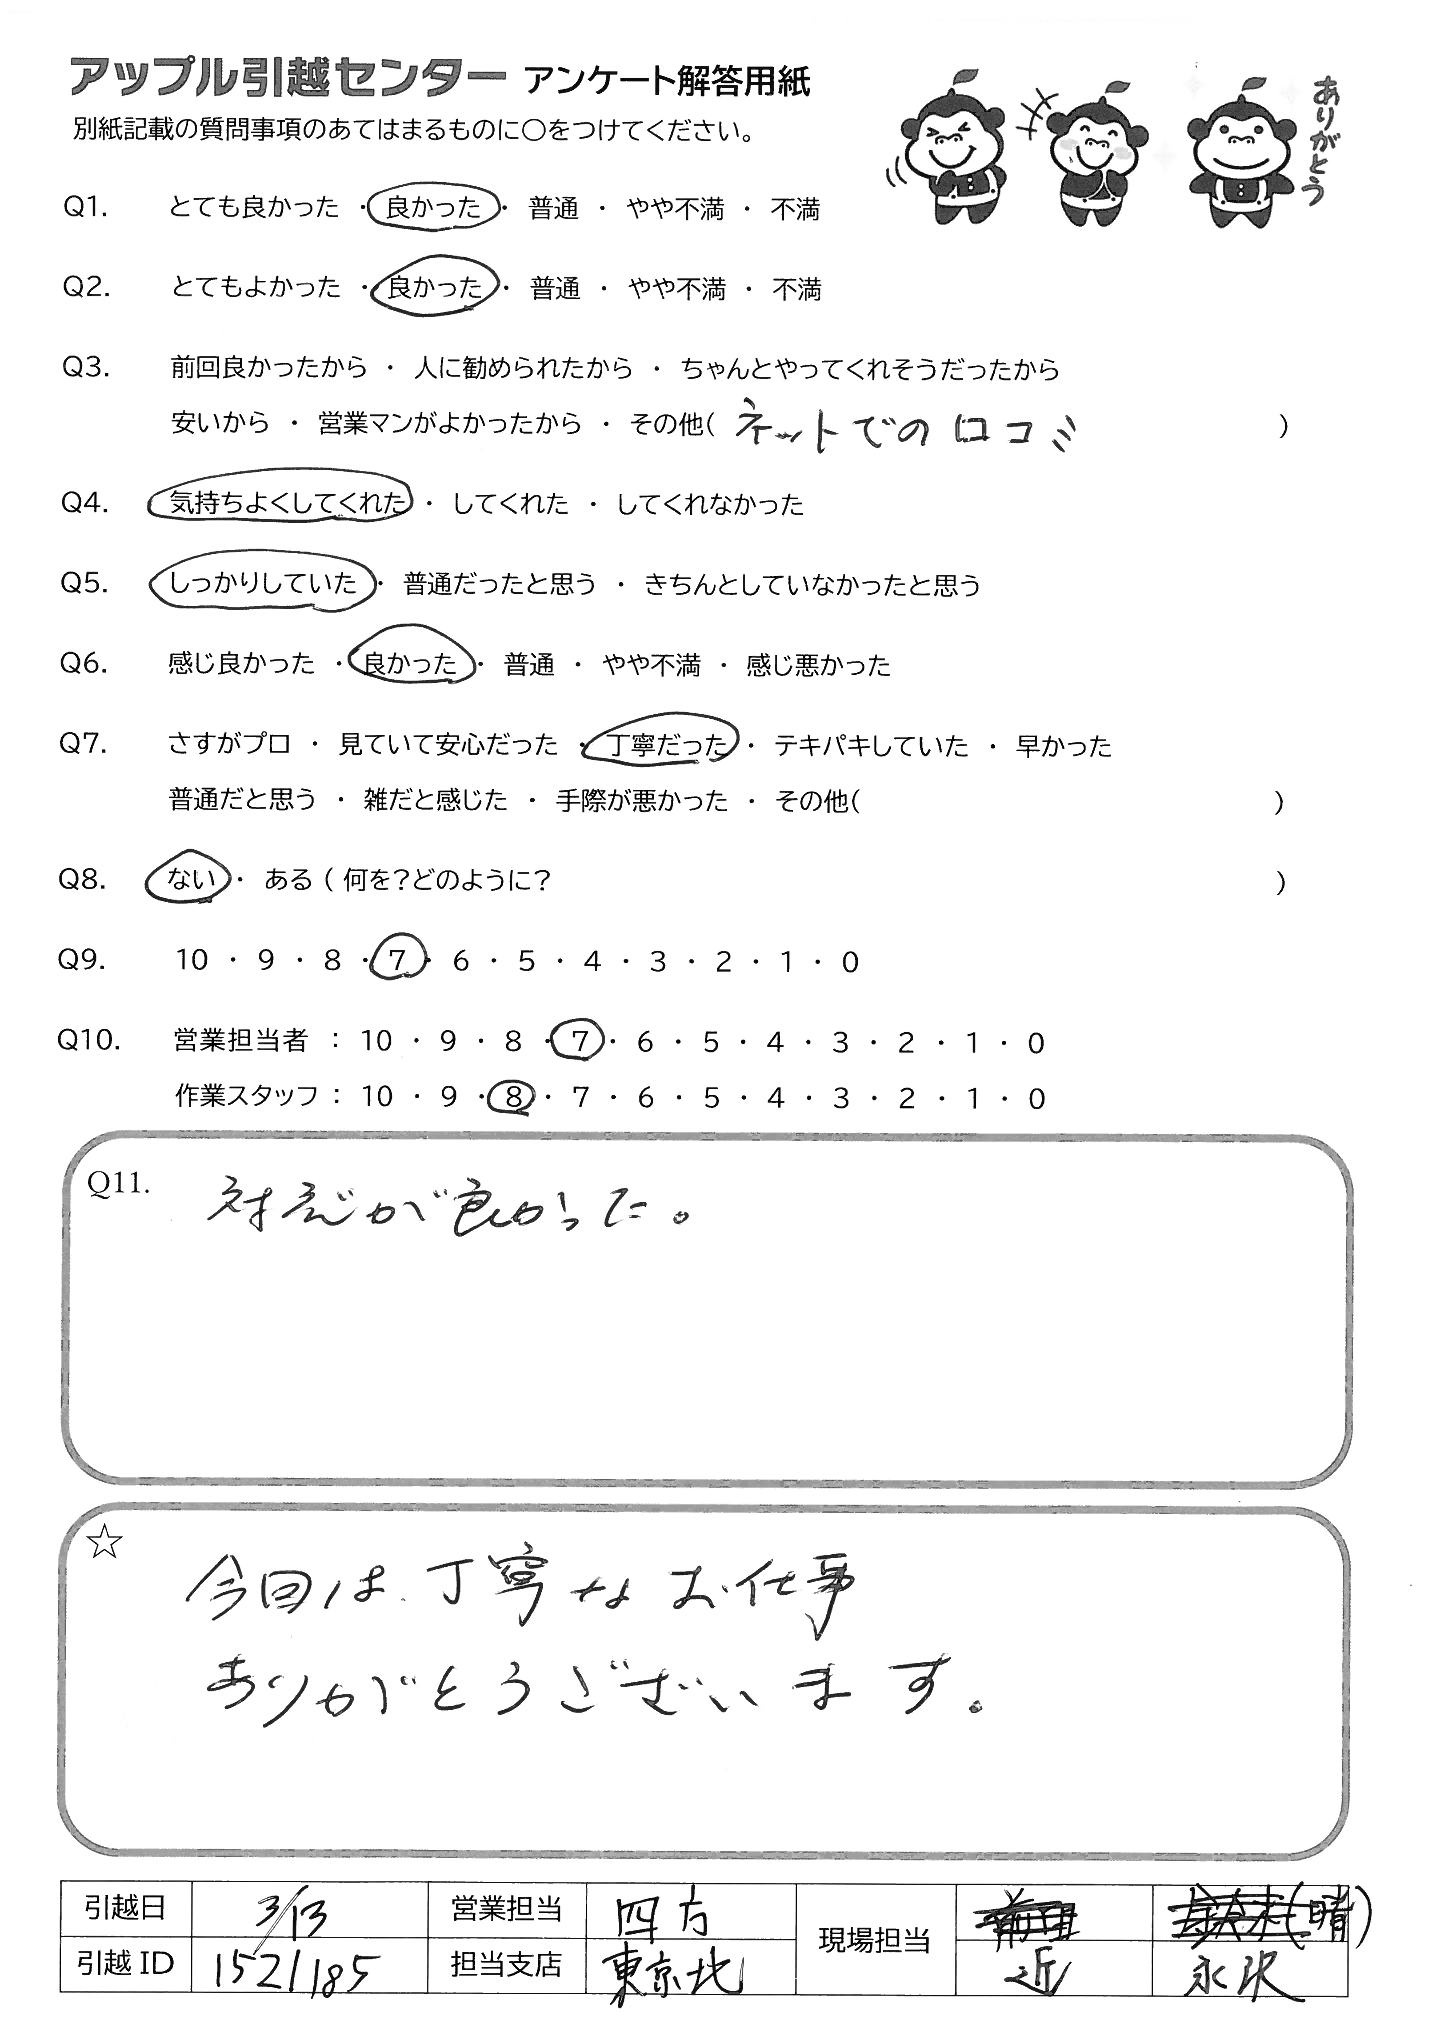 アップル引越センター アンケート解答用紙
ありがとう
別紙記載の質問事項のあてはまるものに○をつけてください。
Q1. とても良かった ・ 良かった ・ 普通 ・ やや不満 ・ 不満
Q2. とてもよかった ・ 良かった ・ 普通 ・ やや不満 ・ 不満
Q3. 前回良かったから ・ 人に勧められたから ・ ちゃんとやってくれそうだったから
安いから ・ 営業マンがよかったから ・ その他( ネットでの口コミ )
Q4. 気持ちよくしてくれた ・ してくれた ・ してくれなかった
Q5. しっかりしていた ・ 普通だったと思う ・ きちんとしていなかったと思う
Q6. 感じ良かった ・ 良かった ・ 普通 ・ やや不満 ・ 感じ悪かった
Q7. さすがプロ ・ 見ていて安心だった ・ 丁寧だった ・ テキパキしていた ・ 早かった
普通だと思う ・ 雑だと感じた ・ 手際が悪かった ・ その他( )
Q8. ない ・ ある ( 何を?どのように? )
Q9. 10 ・ 9 ・ 8 ・ 7 ・ 6 ・ 5 ・ 4 ・ 3 ・ 2 ・ 1 ・ 0
Q10. 営業担当者 : 10 ・ 9 ・ 8 ・ 7 ・ 6 ・ 5 ・ 4 ・ 3 ・ 2 ・ 1 ・ 0
作業スタッフ : 10 ・ 9 ・ 8 ・ 7 ・ 6 ・ 5 ・ 4 ・ 3 ・ 2 ・ 1 ・ 0
Q11. 対応が良かった。
☆
今回は、丁寧なお仕事
ありがとうございます。
引越日 3/13 営業担当 四方 現場担当 (晴)
引越ID 1521185 担当支店 東京北 近 永沢